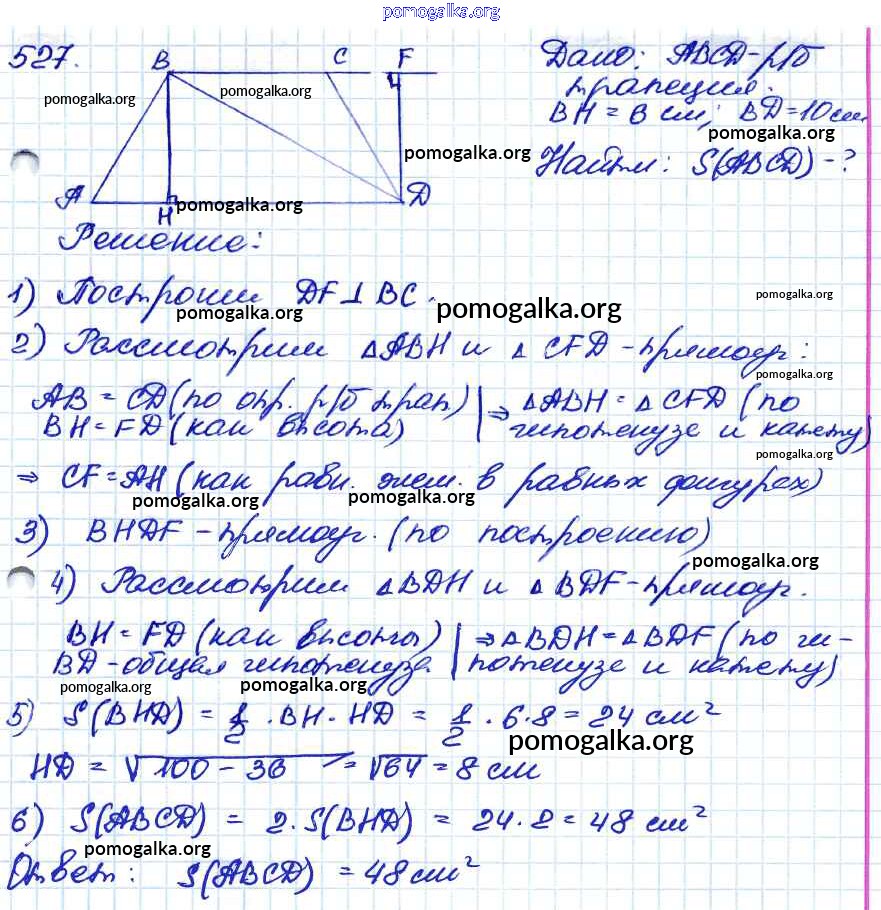 pomogalka.org
527.
B C F
A H D
pomogalka.org pomogalka.org
pomogalka.org
pomogalka.org
Дано: ABCD-р/б
трапеция.
BH = 6 см; BD=10см.
pomogalka.org
Найти: S(ABCD) - ?
Решение:
1) Построим DF⊥BC.
pomogalka.org pomogalka.org pomogalka.org
2) Рассмотрим △ABH и △CFD -прямоуг:
pomogalka.org
AB = CD(по опр. р/б трап) | ⇒ △ABH = △CFD (по
BH=FD(как высота) | гипотенузе и катету)
pomogalka.org
⇒ CF=AH(как равн. элем. в равных фигурах)
pomogalka.org pomogalka.org
3) BHDF -прямоуг. (по построению)
pomogalka.org
4) Рассмотрим △BDH и △BDF-прямоуг.
BH=FD(как высоты) | ⇒△BDH=△BDF(по ги-
BD-общая гипотенуза | потенузе и катету)
pomogalka.org pomogalka.org
5) S(BHD) = 1/2 · BH · HD = 1/2 · 6·8 = 24 см²
pomogalka.org
HD = √100-36 = √64 = 8 см
6) S(ABCD) = 2·S(BHD) = 24·2=48 см²
pomogalka.org
Ответ: S(ABCD) = 48см²